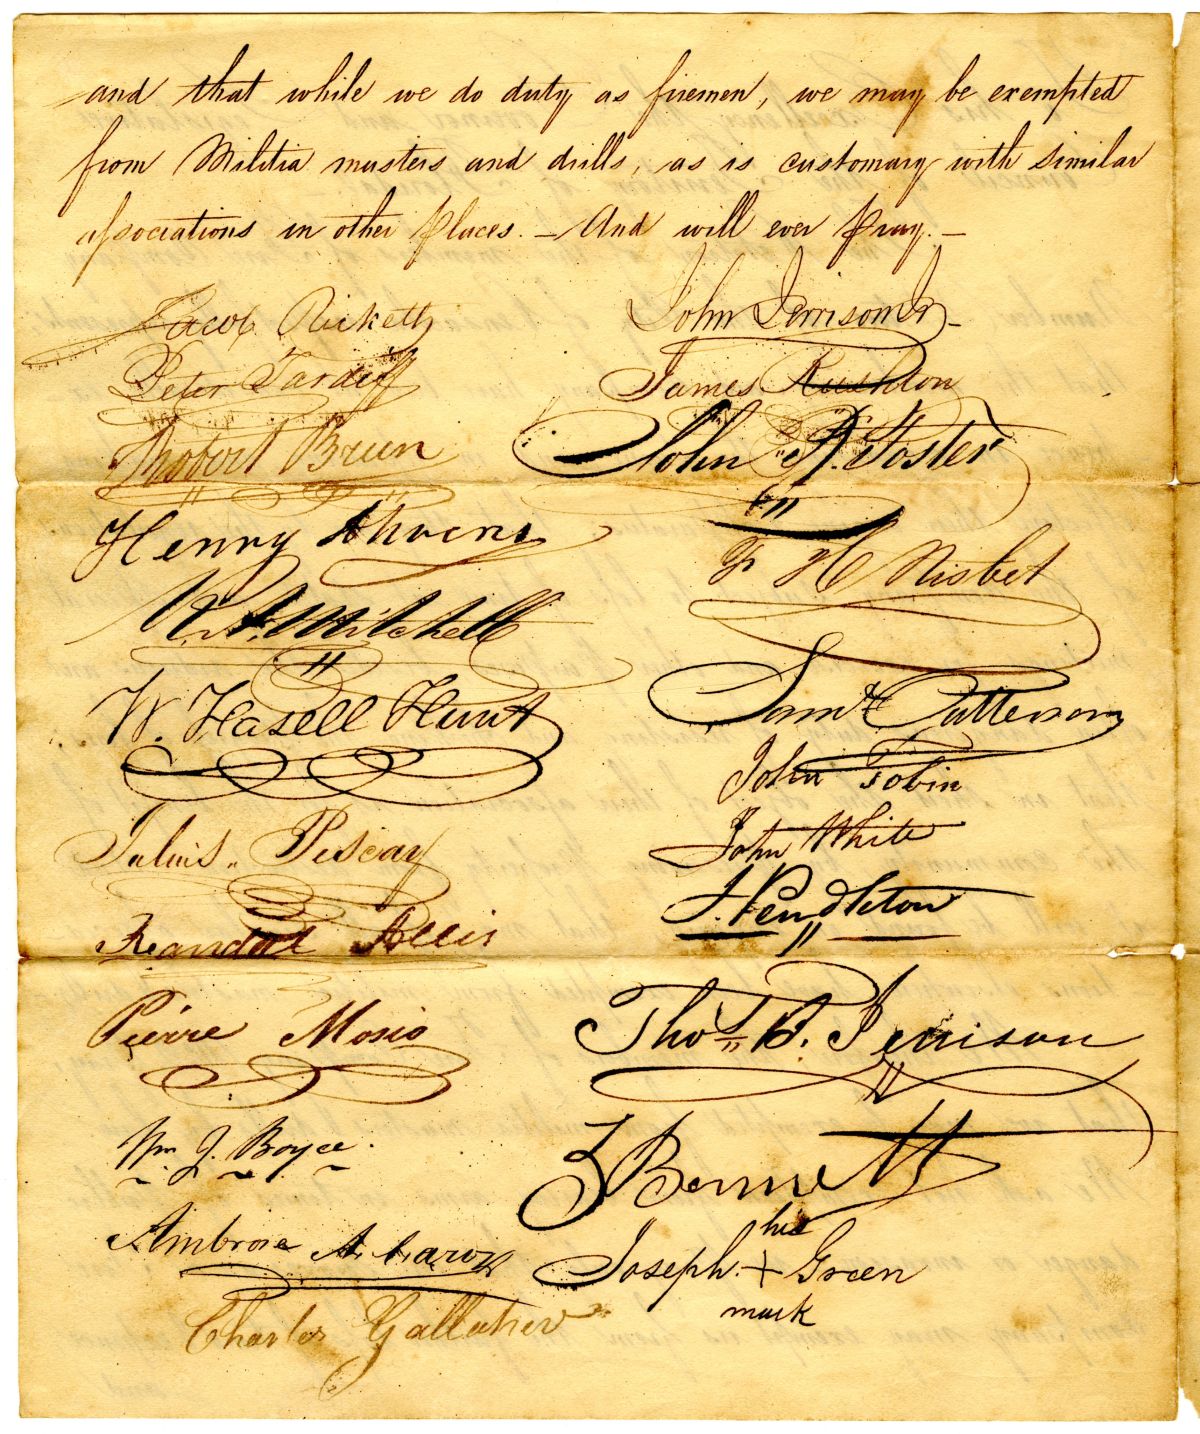 and that while we do duty as firemen, we may be exempted
from Militia musters and drills, as is customary with similar
associations in other Places. — And will ever Pray. —
Jacob Ricketts
Peter Tardiff
Robert Breen
Henry Ahrens
Mitchell
W. Hasell Hunt
Pescay
Randal Allis
Pierre Mosio
Wm J. Boyce.
Ambrose
Charles Gallaher
John Jerrison Jr
James Rushton
John A. Foster
F H Nisbet
Saml Patterson
John Tobin
John White
J. Pendleton
Thos B. Jerrison
Bennett
his
Joseph + Green
mark